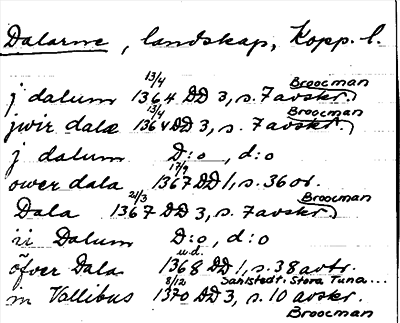 Dalarne, landskap, Kopp. l.
j dalum 13/4 1364 DD 3, s. 7 avskr. Broocman
jwir dala 13/4 1364 DD 3, s. 7 avskr. Broocman
j dalum D:o, d:o
ower dala 17/9 1367 DD 1, s. 36 or.
Dala 21/3 1367 DD 3, s. 7 avskr. Broocman
ii Dalum D:o, d:o
öfver Dala u.d. 1368 DD 1, s. 38 avtr. Sahlstedt: Stora Tuna...
m Vallibus 8/12 1370 DD 3, s. 10 avskr. Broocman